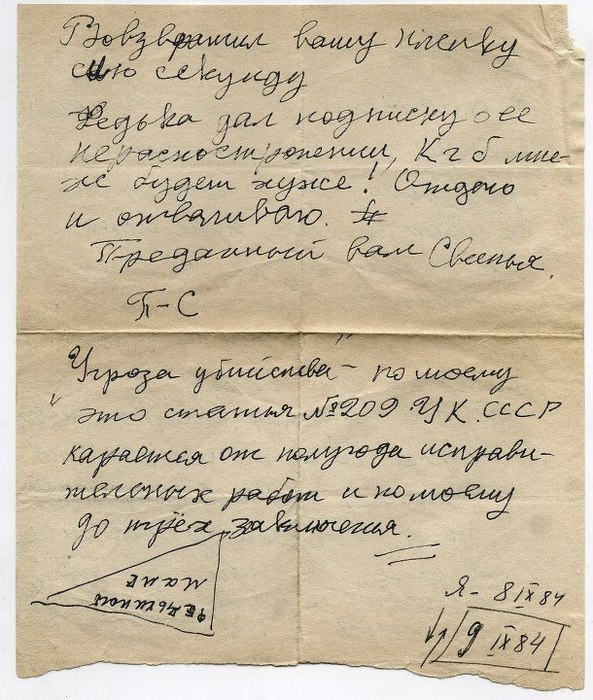 Вовзвратил вашу пленку
сию секунду
Федька дал подписку о ее
нераспостронении, Кгб мне-
же будет хуже! Отдаю
и отваливаю.
Преданный вам Свинья.
П-С
"Угроза убийства" - по моему
это статья №209 УК. СССР
карается от полугода исправи-
тельных работ и по моему
до трёх заключения.
Федькиной
маме
Я - 8 IX 84
9 IX 84